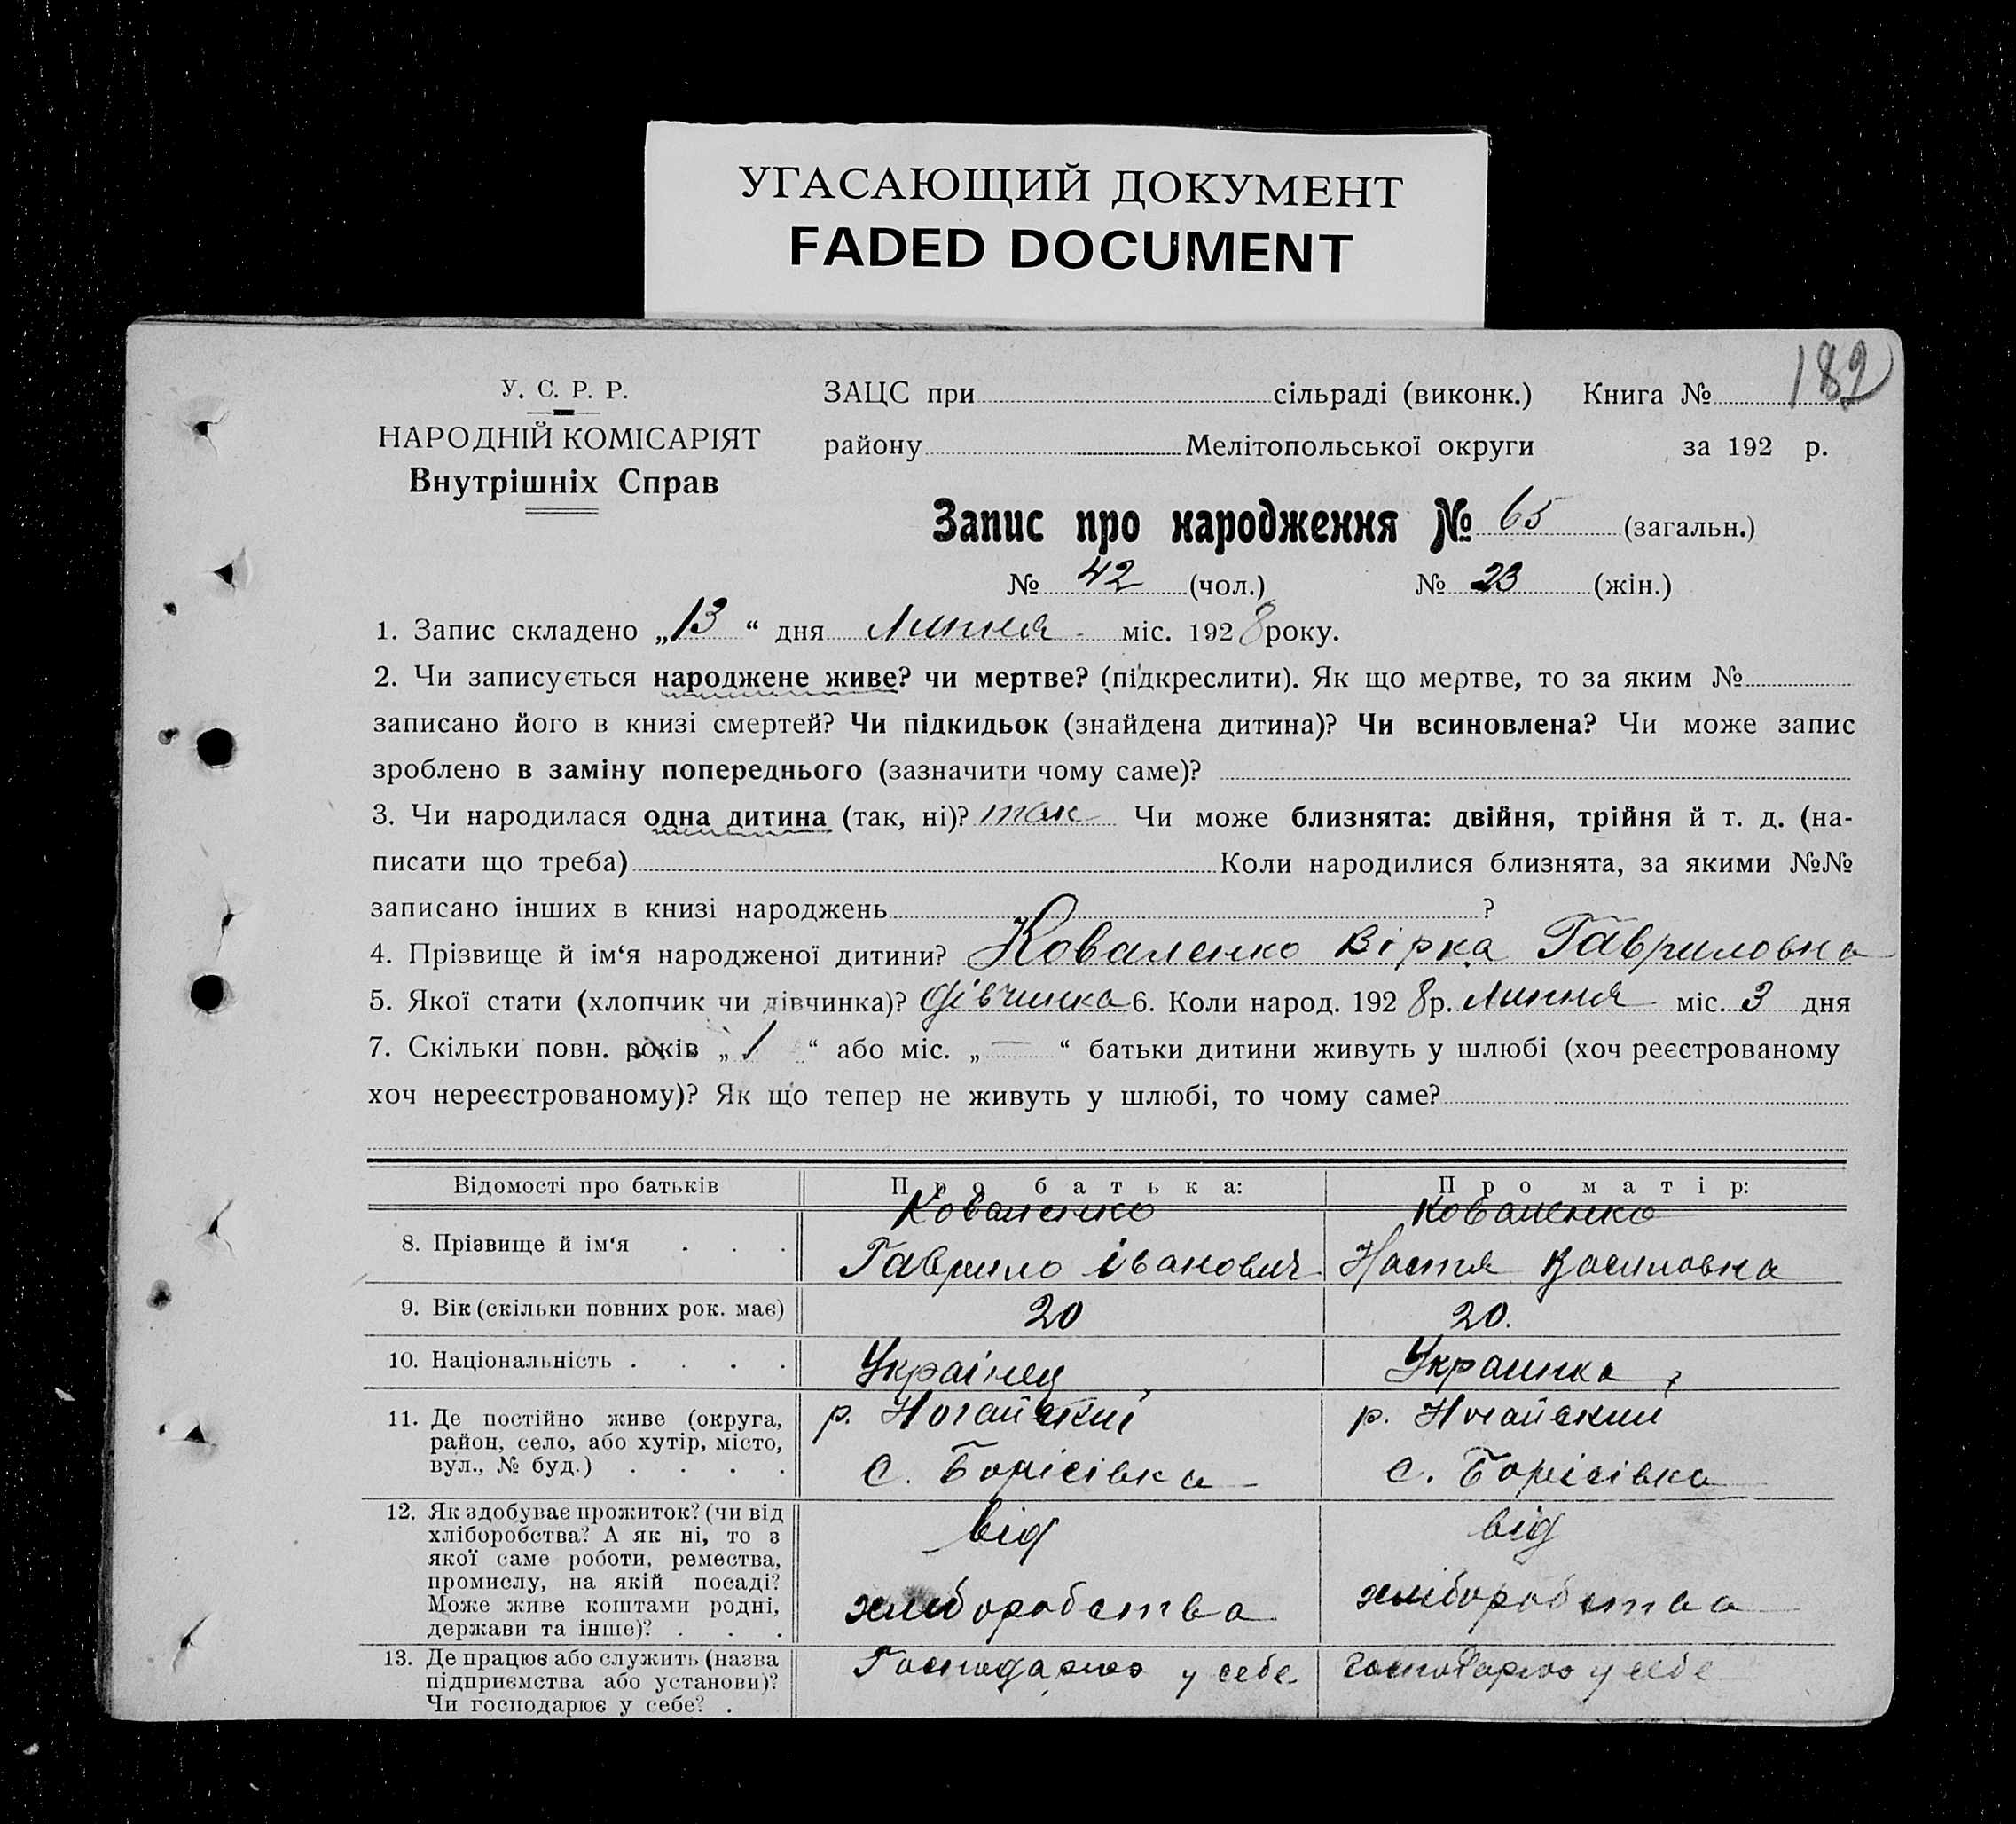 УГАСАЮЩИЙ ДОКУМЕНТ
FADED DOCUMENT
182
У. С. Р. Р.
НАРОДНІЙ КОМІСАРІЯТ
Внутрішніх Справ
ЗАЦС при сільраді (виконк.) Книга №
району Мелітопольської округи за 192 р.
Запис про народження № 65 (загальн.)
№ 42 (чол.) № 23 (жін.)
1. Запис складено „13“ дня Липня міс. 1928 року.
2. Чи записується народжене живе? чи мертве? (підкреслити). Як що мертве, то за яким №
записано його в книзі смертей? Чи підкидьок (знайдена дитина)? Чи всиновлена? Чи може запис
зроблено в заміну попереднього (зазначити чому саме)?
3. Чи народилася одна дитина (так, ні)? так Чи може близнята: двійня, трійня й т. д. (на-
писати що треба) Коли народилися близнята, за якими №№
записано інших в книзі народжень ?
4. Прізвище й ім‘я народженої дитини? Коваленко Вірка Гавриловна
5. Якої стати (хлопчик чи дівчинка)? дівчинка 6. Коли народ. 1928 р. Липня міс. 3 дня
7. Скільки повн. років „1“ або міс. „—“ батьки дитини живуть у шлюбі (хоч реєстрованому
хоч нереєстрованому)? Як що тепер не живуть у шлюбі, то чому саме?
Відомості про батьків Про батька: Про матір:
Коваленко Коваленко
8. Прізвище й ім‘я . . . Гаврило Іванович Настя Василовна
9. Вік (скільки повних рок. має) 20 20.
10. Національність . . . . Українец Украинка
11. Де постійно живе (округа, р. Ногайский р. Ногайский
район, село, або хутір, місто,
вул., № буд.) . . . . с. Борісівка с. Борісівка
12. Як здобуває прожиток? (чи від від від
хліборобства? А як ні, то з
якої саме роботи, ремества,
промислу, на якій посаді?
Може живе коштами родні, хліборобства хліборобства
держави та інше)? . . .
13. Де працює або служить (назва Господарює у себе господарює у себе
підприємства або установи)?
Чи господарює у себе? .